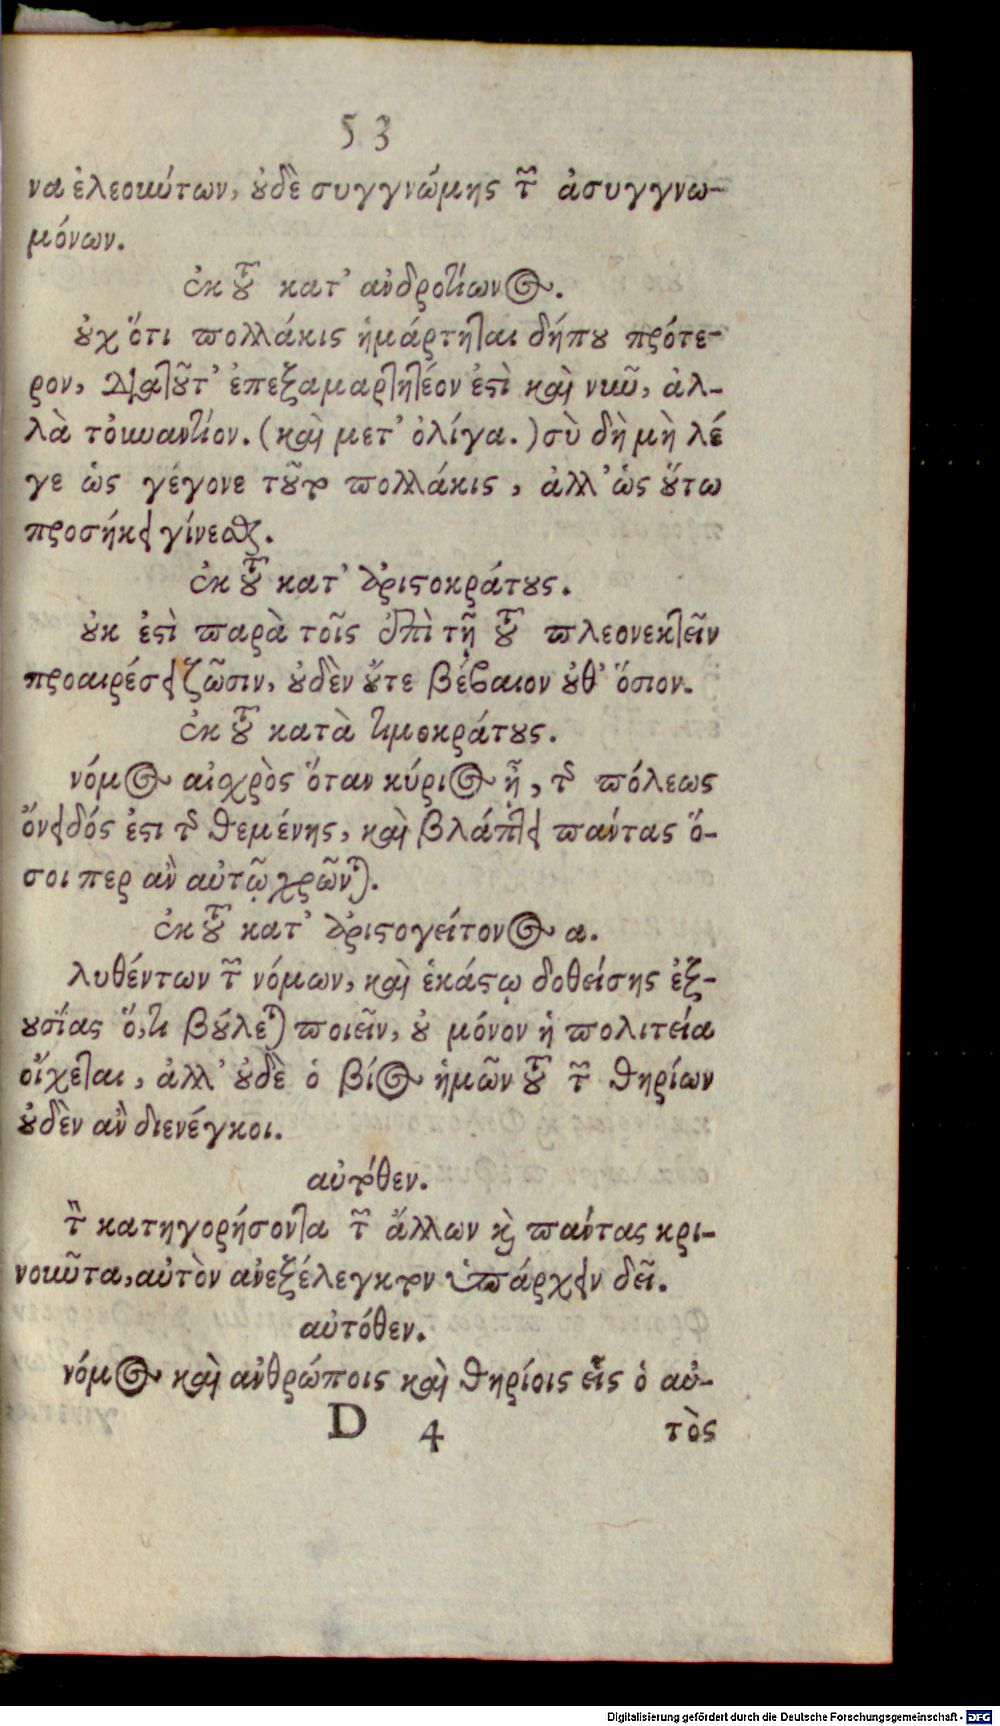 53
να ἐλεούντων, οὐδὲ συγγνώμης τῶν ἀσυγγνω-
μόνων.
ἐκ τοῦ κατ᾽ ἀνδροτίωνος.
οὐχ ὅτι πολλάκις ἡμάρτηται δήπου πρότε-
ρον, διὰ τοῦτ᾽ ἐπεξαμαρτητέον ἐστὶ καὶ νῦν, ἀλ-
λὰ τοὐναντίον. (καὶ μετ᾽ ὀλίγα.) σὺ δὴ μὴ λέ
γε ὡς γέγονε τοῦτο πολλάκις, ἀλλ᾽ ὡς οὕτω
προσήκει γίνεσθαι.
ἐκ τοῦ κατ᾽ ἀριστοκράτους.
οὐκ ἐστὶ παρὰ τοῖς ἐπὶ τῇ τοῦ πλεονεκτεῖν
προαιρέσει ζῶσιν, οὐδὲν οὔτε βέβαιον οὐθ᾽ ὅσιον.
ἐκ τοῦ κατὰ τιμοκράτους.
νόμος αἰσχρὸς ὅταν κύριος ᾖ, τῆς πόλεως
ὄνειδός ἐστι τῆς θεμένης, καὶ βλάπτει πάντας ὅ-
σοι περ ἂν αὐτῷ χρῶνται.
ἐκ τοῦ κατ᾽ ἀριστογείτονος α.
λυθέντων τῶν νόμων, καὶ ἑκάστῳ δοθείσης ἐξ-
ουσίας ὅ,τι βούλεται ποιεῖν, οὐ μόνον ἡ πολιτεία
οἴχεται, ἀλλ᾽ οὐδὲ ὁ βίος ἡμῶν τοῦ τῶν θηρίων
οὐδὲν ἂν διενέγκοι.
αὐτόθεν.
τὸν κατηγορήσοντα τῶν ἄλλων καὶ πάντας κρι-
νοῦντα, αὐτὸν ἀνεξέλεγκτον ὑπάρχειν δεῖ.
αὐτόθεν.
νόμος καὶ ἀνθρώποις καὶ θηρίοις εἷς ὁ αὐ-
D 4 τὸς
Digitalisierung gefördert durch die Deutsche Forschungsgemeinschaft - DFG